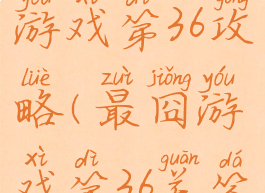 游戏第36攻
lüè zuì jiǒng yóu
略(最囧游
xì dì guān dá
戏第36关答